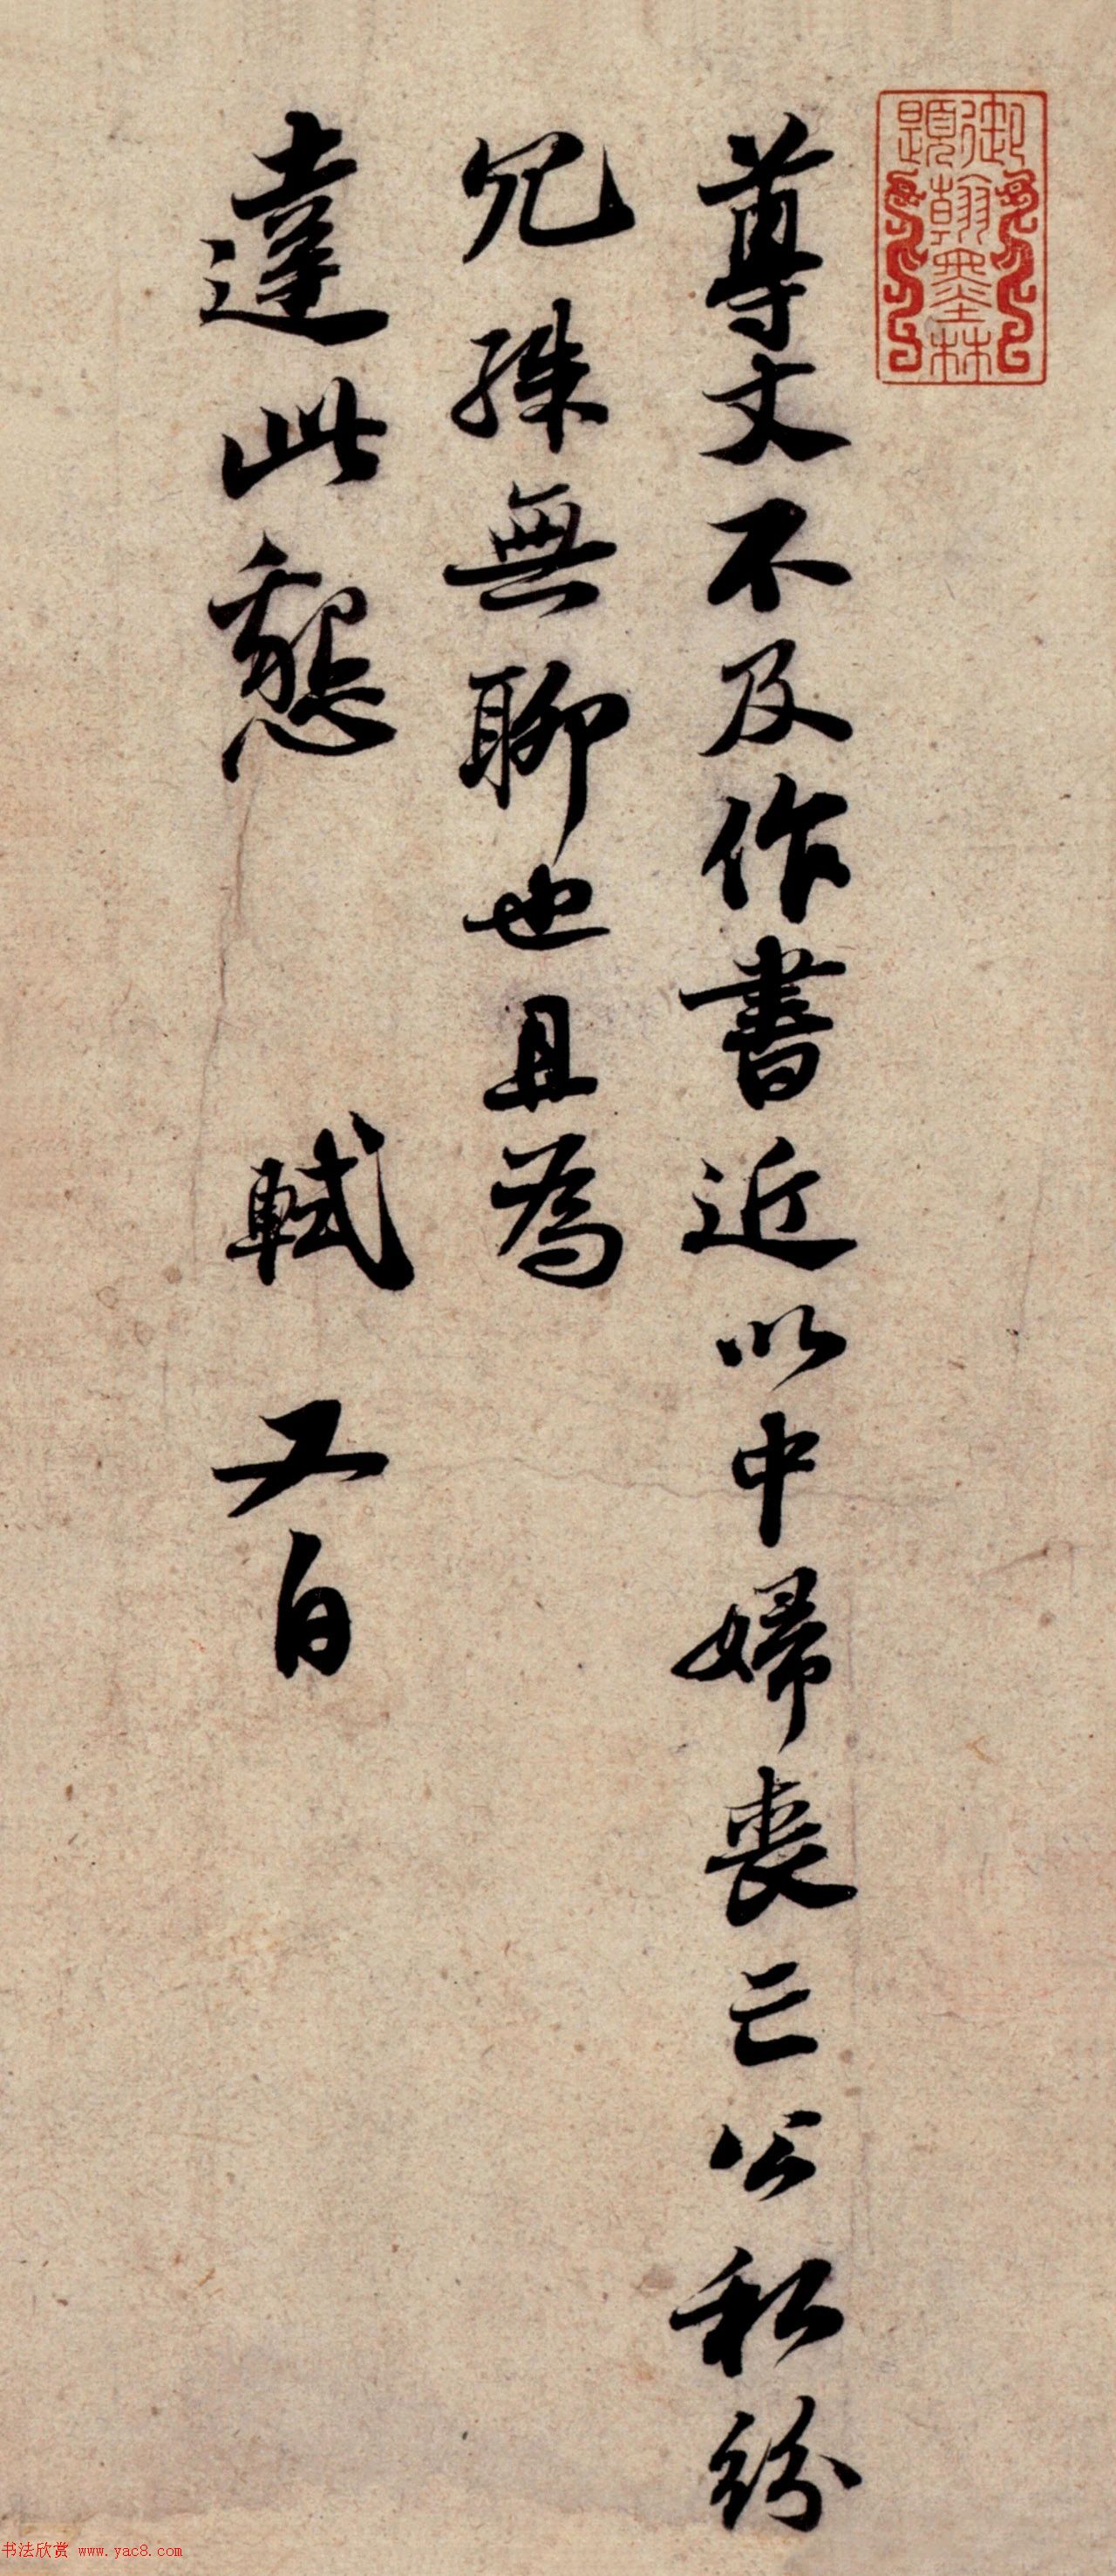 御題翰墨林
尊丈不及作書近以中婦喪亡公私紛
冗殊無聊也且為
達此懇 軾又白
书法欣赏 www.yac8.com